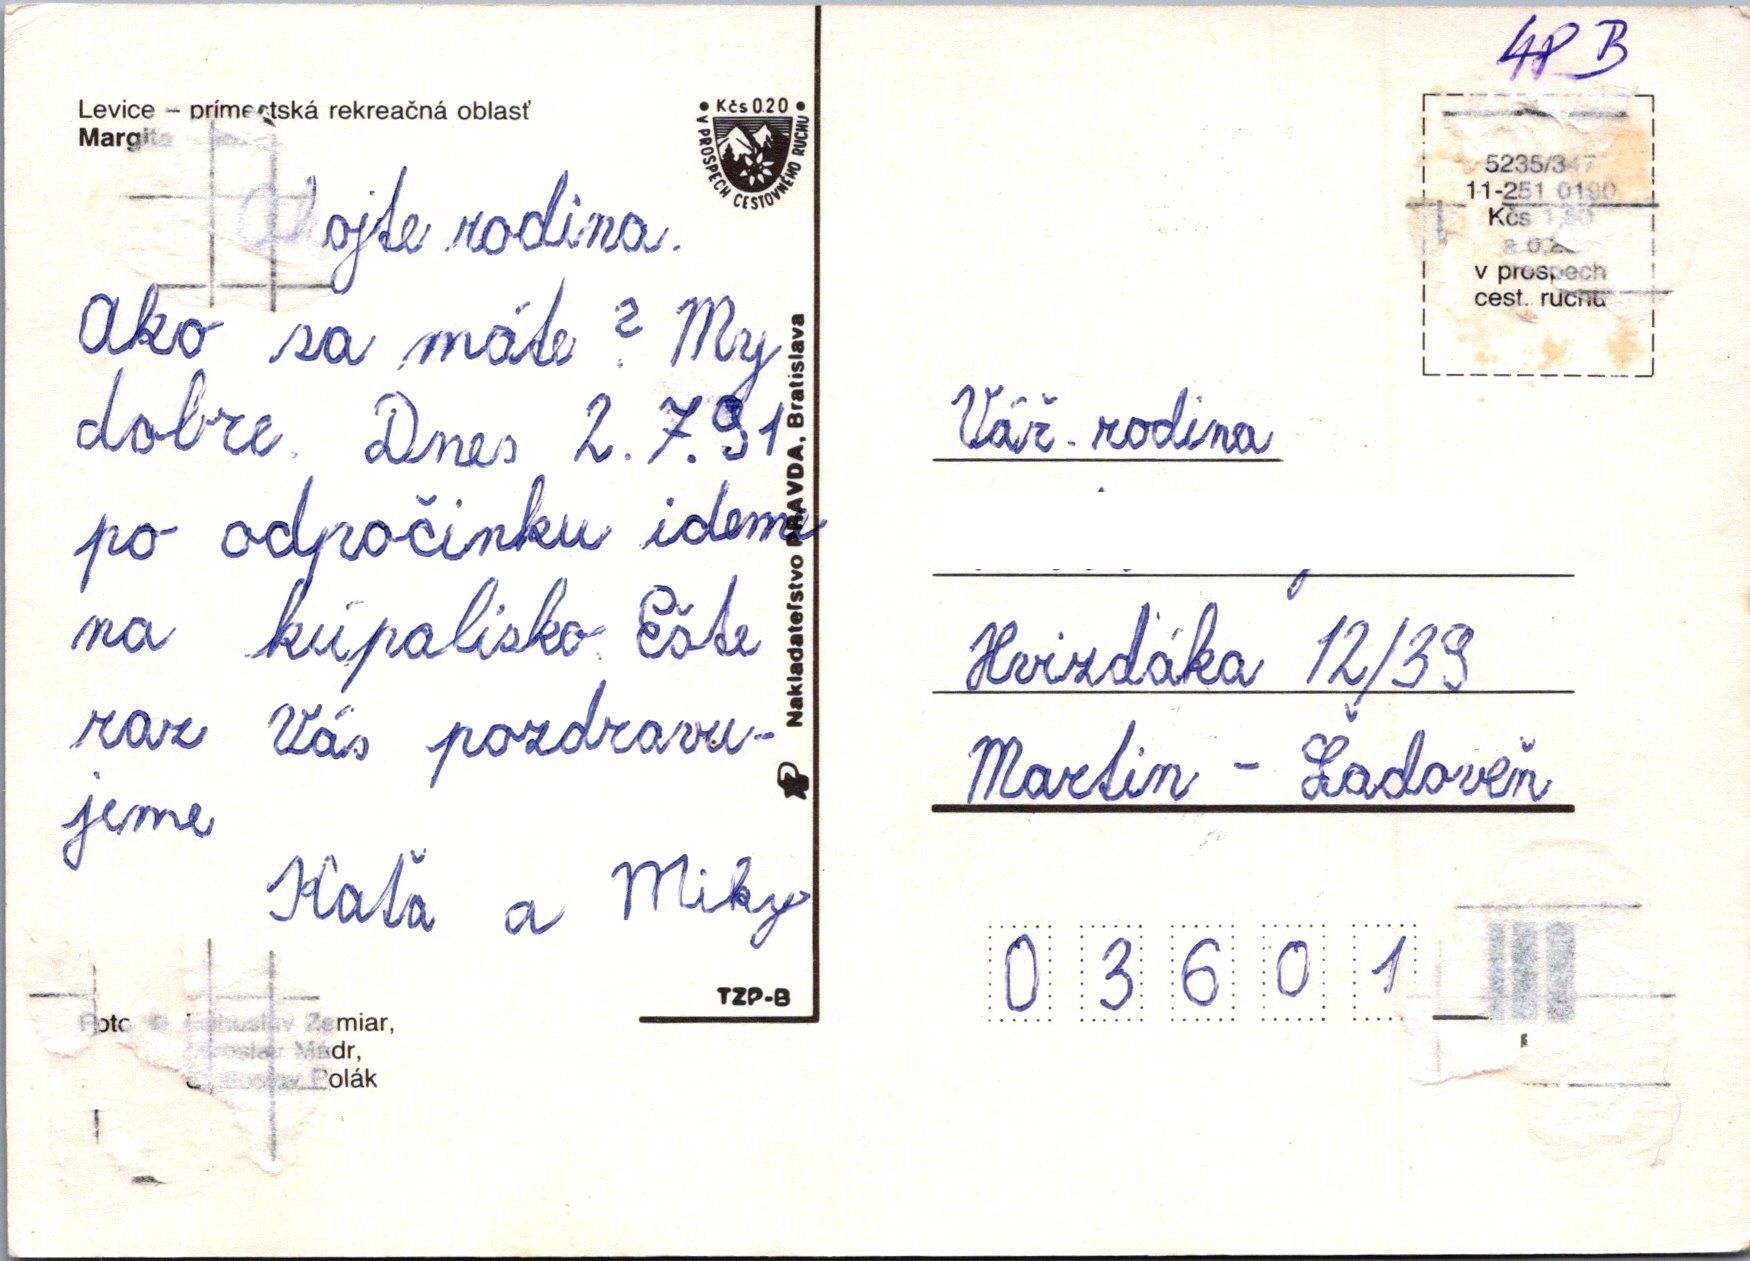 4P B
Levice – prímestská rekreačná oblasť
Margita
• Kčs 0.20 •
V PROSPECH CESTOVNÉHO RUCHU
ojte rodina.
Ako sa máte? My
dobre. Dnes 2.7.91
po odpočinku ideme
na kúpalisko. Ešte
raz Vás pozdravu-
jeme
Katà a Miky
Nakladateľstvo PRAVDA, Bratislava
TZP-B
Foto © Bohuslav Zemiar,
Mádr,
Polák
5235/347
11-251 0190
Kčs 1,80
a 0,20
v prospech
cest. ruchu
Váž. rodina
Hvizdáka 12/39
Martin - Ľadoveň
03601